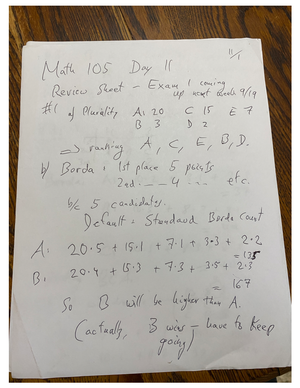 11/1
Math 105 Day 11
Review Sheet - Exam 1 coming
up next week 9/19
#1 a) Plurality A: 20 C 15 E 7
B 3 D 2
⇒ ranking A, C, E, B, D.
b) Borda: 1st place 5 points
2nd - - - 4 - - - etc.
b/c 5 candidates.
Default = Standard Borda Count
A: 20·5 + 15·1 + 7·1 + 3·3 + 2·2
= 135
B: 20·4 + 15·3 + 7·3 + 3·5 + 2·3
= 167
So B will be higher than A.
(actually, B wins - have to keep
going)